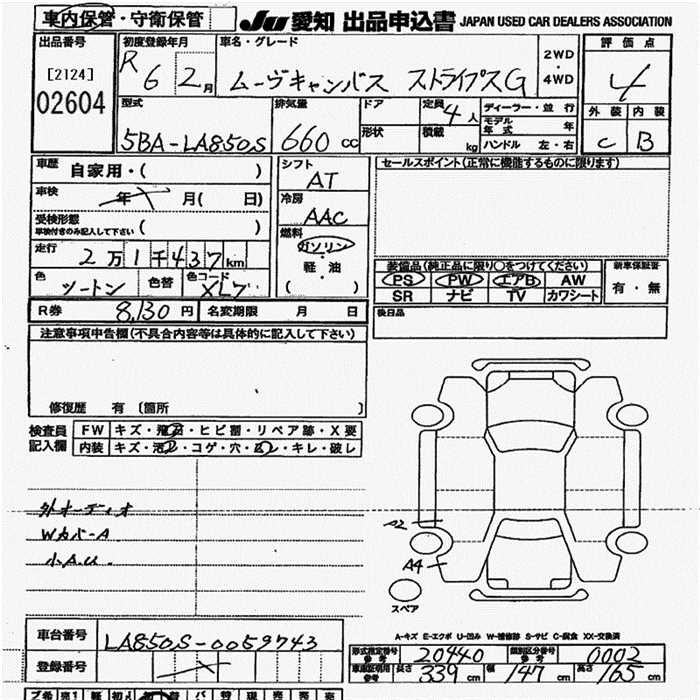 車内保管・守衛保管 JU 愛知 出品申込書 JAPAN USED CAR DEALERS ASSOCIATION
出品番号 初度登録年月 車名・グレード 2WD・4WD 評価点
[2124] R 6 2月 ムーヴキャンバス ストライプスG 4
02604 型式 排気量 ドア 定員 4人 ディーラー・並行 外装 内装
5BA-LA850S 660cc 形状 積載 kg モデル年式 年 C B
ハンドル 左・右
車歴 自家用・( ) シフト AT セールスポイント(正常に機能するものに限ります)
車検 年 月( 日) 冷房 AAC
受検形態 車検付きのみ記入して下さい ( ) 燃料 ガソリン・軽・油 ( )
走行 2万1千437km 装備品(純正品に限り○をつけてください) 新車保証書
色 ツートン 色替 色コード PS PW エアB AW 有・無
SR ナビ TV カワシート
R券 8,130円 名変期限 月 日 後日品
注意事項申告欄(不具合内容等は具体的に記入して下さい)
修復歴 有 〔箇所
検査員記入欄 FW キズ・飛石・ヒビ割・リペア跡・X要
内装 キズ・汚レ・コゲ・穴・スレ・キレ・破レ
外オーディオ
Wカバー A
小A.U.
A2
A4
スペア
A-キズ E-エクボ U-凹み W-補修跡 S-サビ C-腐食 XX-交換済
車台番号 LA850S-0059743 形式指定番号 参考 20440 類別区分番号 参考 0002
登録番号 車庫証明用 参考 長さ 339cm 幅 147cm 高さ 165cm